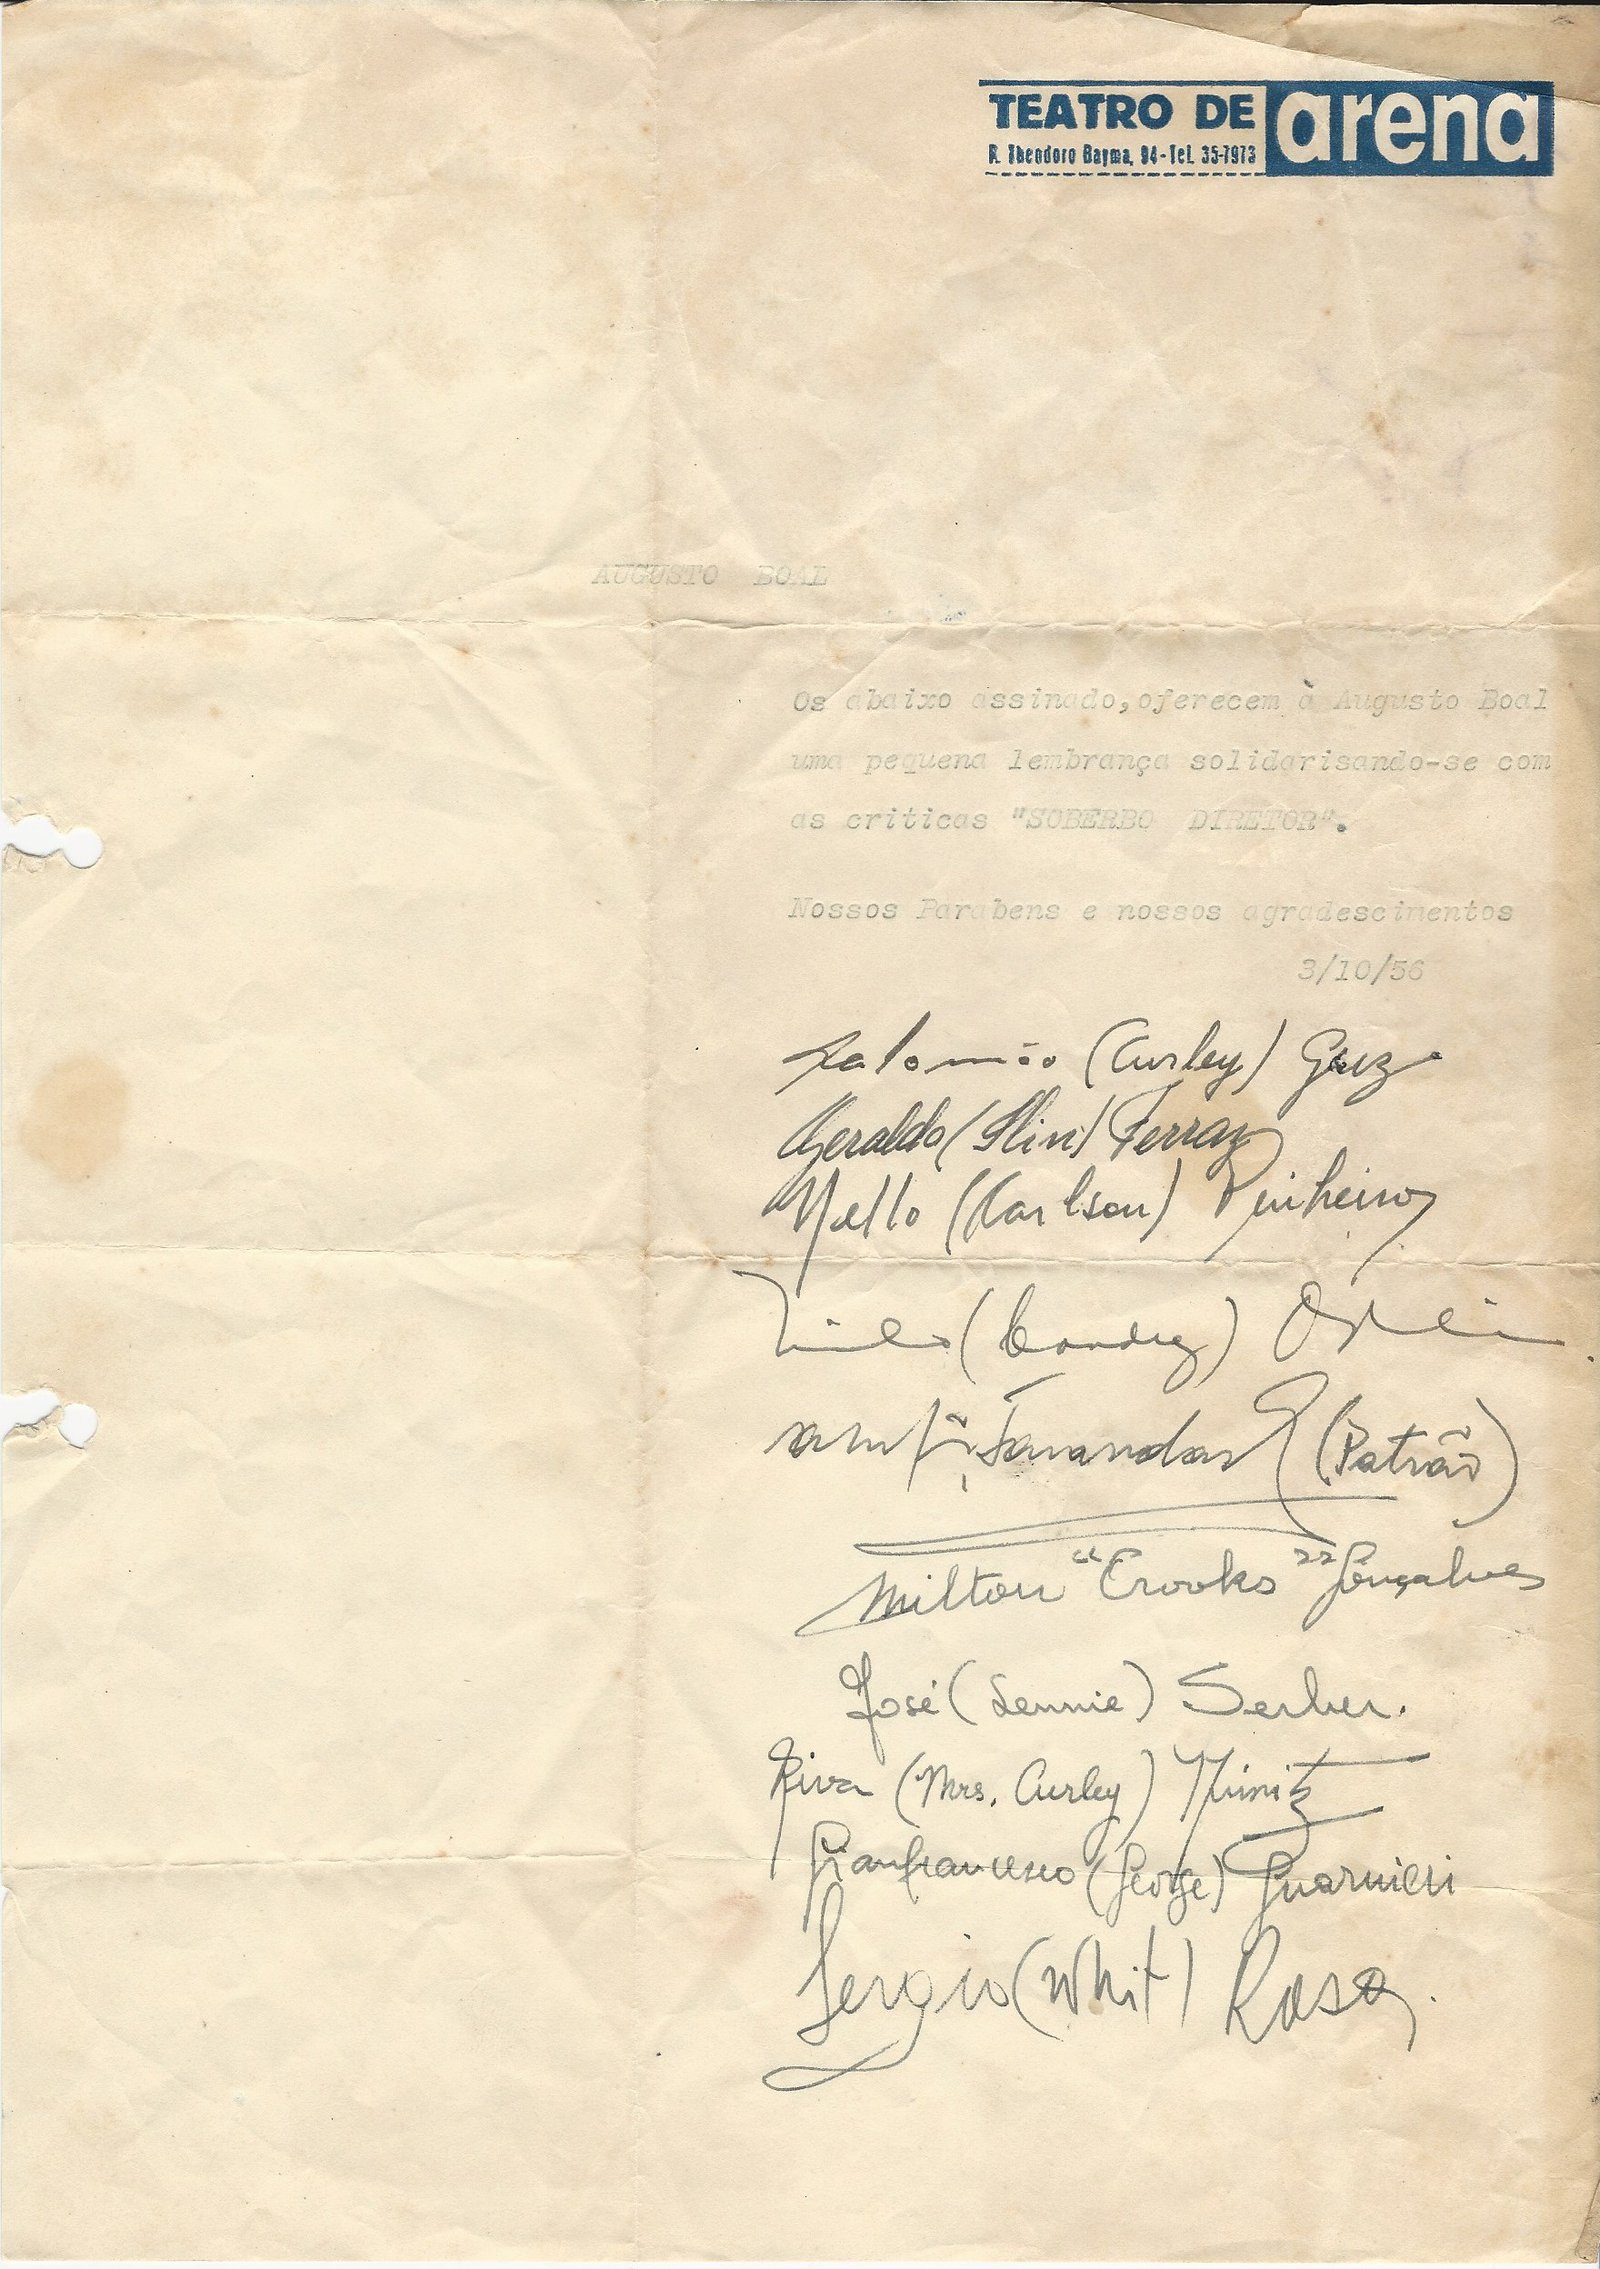 TEATRO DE arena
R. Theodoro Bayma, 94-Tel. 35-7973
AUGUSTO BOAL
Os abaixo assinado,oferecem à Augusto Boal
uma pequena lembrança solidarisando-se com
as criticas "SOBERBO DIRETOR".
Nossos Parabens e nossos agradescimentos
3/10/56
Salomão (Curley) Guz
Geraldo (Slim) Ferraz
Mello (Carlson) Pinheiro
(Candy)
(Patrão)
Milton "Crooks" Gonçalves
José (Lennie) Serber.
Riva (Mrs. Curley) Nimitz
Gianfrancesco (George) Guarnieri
Sergio (Whit) Rosa.